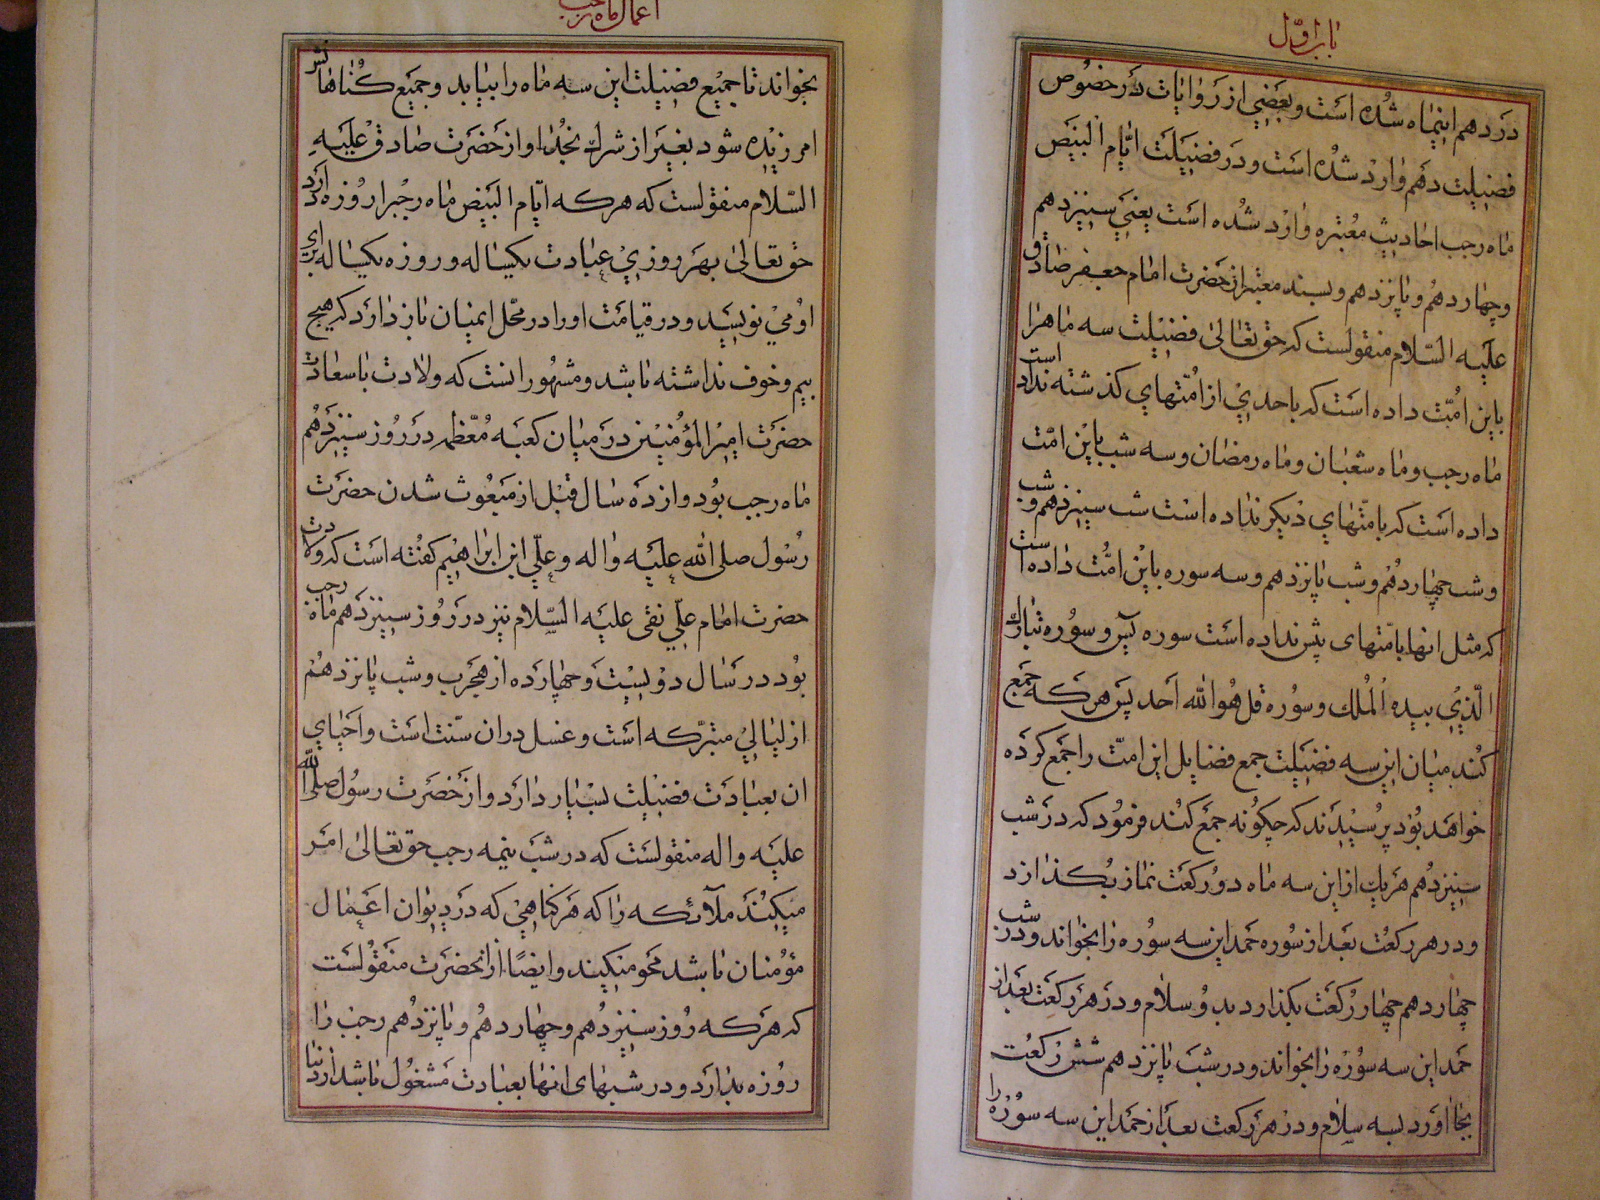 باب اول
در دهم اینماه شده است و بعضی از روایات در خصوص
فضیلت دهم وارد شده است و در فضیلت ایّام البیض
ماه رجب احادیث معتبره وارد شده است یعنی سیزدهم
و چهاردهم و پانزدهم و بسند معتبر از حضرت امام جعفر صادق
علیه السّلام منقولست که حق تعالی فضیلت سه ماه را
باین امّت داده است که باحدی از امّتهای گذشته نداده است
ماه رجب و ماه شعبان و ماه رمضان و سه شب باین امّت
داده است که بامّتهای دیگر نداده است شب سیزدهم و شب
و شب چهاردهم و شب پانزدهم و سه سوره باین امّت داده است
که مثل انها بامّتهای پیش نداده است سوره یٓس و سوره تبارک
الّذی بیده الملک و سوره قل هو الله احد پس هر که جمع
کند میان این سه فضیلت جمع فضایل این امّت را جمع کرده
خواهد بود پرسیدند که چگونه جمع کند فرمود که در شب
سیزدهم هر یک از این سه ماه دو رکعت نماز بگذارد
و در هر رکعت بعد از سوره حمد این سه سوره را بخواند و در شب
چهاردهم چهار رکعت بگذارد بدو سلام و در هر رکعت بعد از
حمد این سه سوره را بخواند و در شب پانزدهم شش رکعت
بجا اورد بسه سلام و در هر رکعت بعد از حمد این سه سوره را
اعمال ماه رجب
بخواند تا جمیع فضیلت این سه ماه را بیابد و جمیع گناهانش
امرزیده شود بغیر از شرک بخدا و از حضرت صادق علیه
السّلام منقولست که هر که ایّام البیض ماه رجب را روزه دارد
حق تعالی بهر روزی عبادت یکساله و روزه یکساله برای
او می نویسد و در قیامت او را در محّل ایمنان باز دارد که هیچ
بیم و خوف نداشته باشد و مشهور انست که ولادت با سعادت
حضرت امیر المؤمنین در میان کعبه معّظمه در روز سیزدهم
ماه رجب بود دوازده سال قبل از مبعوث شدن حضرت
رسول صلی الله علیه و اله و علّی ابن ابراهیم گفته است که ولادت
حضرت امام علّی نقی علیه السّلام نیز در روز سیزدهم ماه رجب
بود در سال دویست و چهارده از هجرت و شب پانزدهم
از لیالی متبّرکه است و غسل دران سنّت است و احیای
ان بعبادت فضیلت بسیار دارد و از حضرت رسول صلی الله
علیه و اله منقولست که در شب نیمه رجب حق تعالی امر
میکند ملآئکه را که هر گناهی که در دیوان اعمال
مؤمنان باشد محو میکنند و ایضًا از انحضرت منقولست
که هر که روز سیزدهم و چهاردهم و پانزدهم رجب را
روزه بدارد و در شبهای انها بعبادت مشغول باشد از دنیا